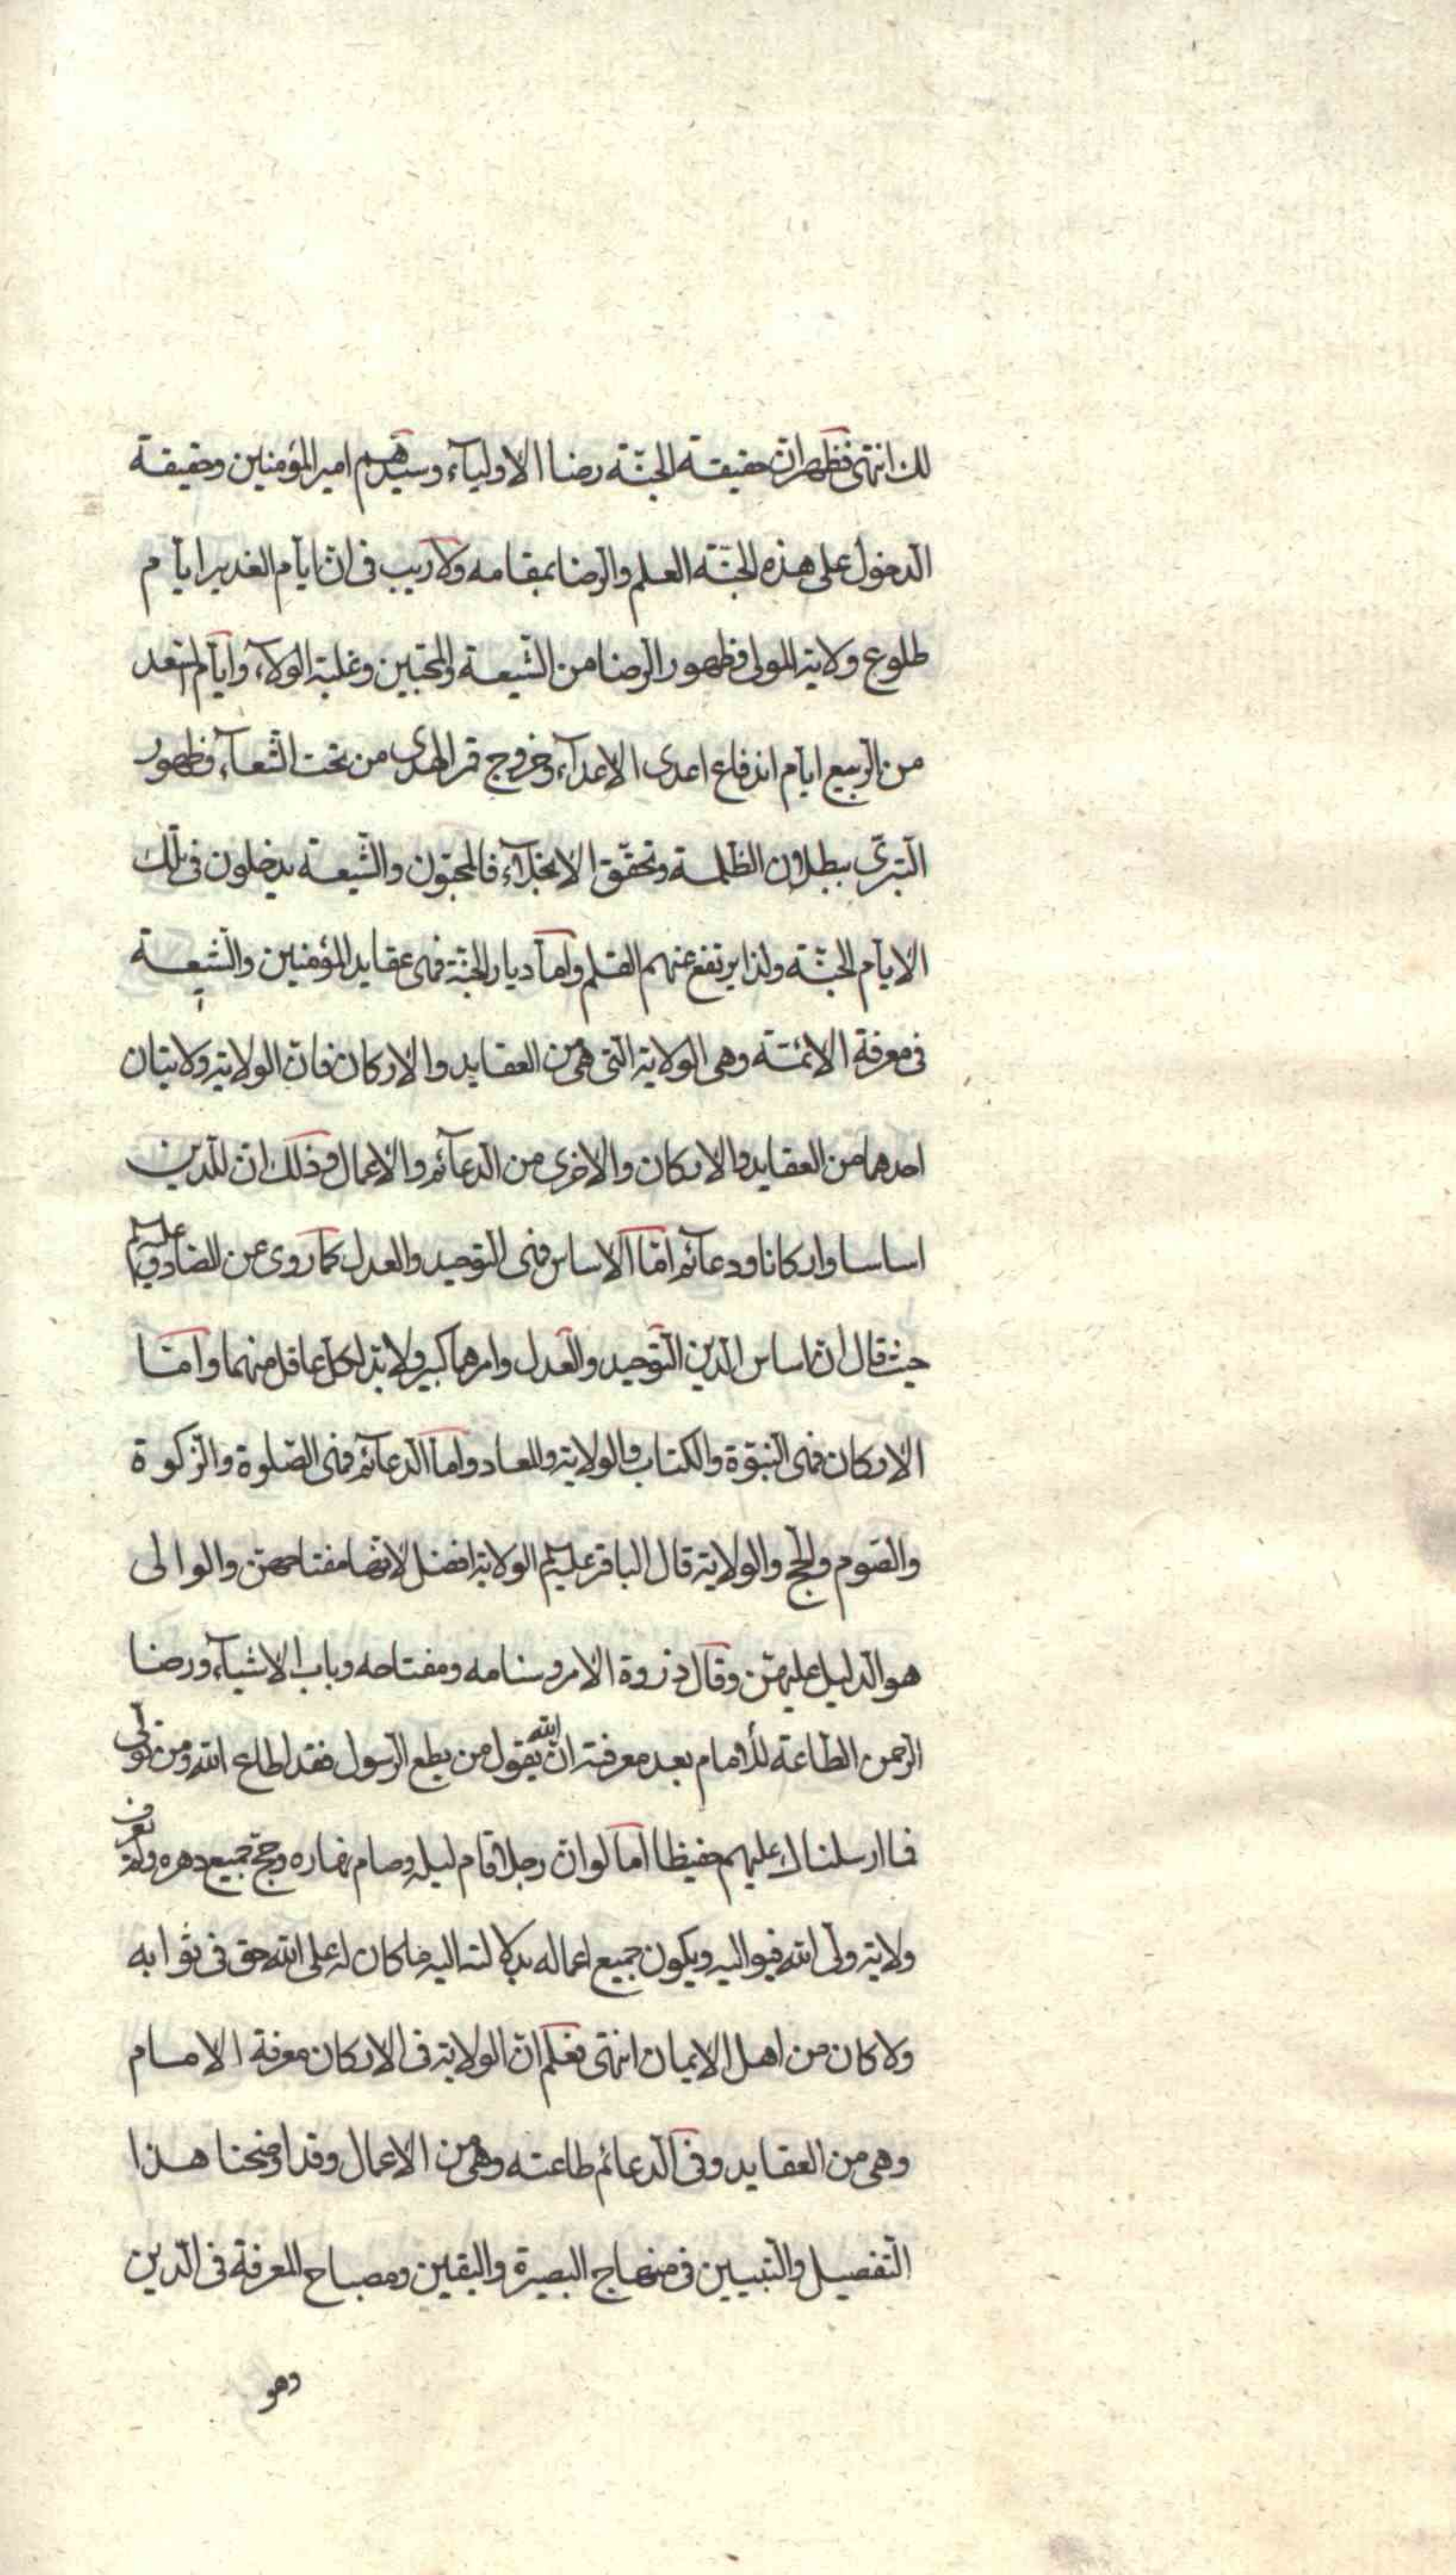 لك انتهى فظهر ان حقيقة الجنّة رضا الاوليآء وسيّدهم امير المؤمنين وحقيقة
الدخول على هذه الجنّة العلم والرّضا بمقامه ولا ريب فى ان ايّام الغدير ايّام
طلوع ولاية المولى وظهور الرضا من الشّيعة والمحبّين وغلبة الولآء وايّام التسعة
من الرّبيع ايام اندفاع اعدى الاعدآء وخروج قمر الهدى من تحت الشّعآء وظهور
التبرّى ببطلان الظلمة وتحقّق الانجلآء فالمحبّون والشّيعة يدخلون فى تلك
الايّام الجنّة ولذا يرتفع عنهم القلم وامّا ديار الجنّة فهى عقايد المؤمنين والشّيعة
فى معرفة الائمّة وهى الولاية التى هى من العقايد والاركان فانّ الولاية ولايتان
احدهما من العقايد والاركان والاخرى من الدعآئم والاعمال وذلك انّ للدّين
اساسا واركانا ودعآئم امّا الاساس فهى التوحيد والعدل كما روى عن الصّادق عليه السلام
حيث قال ان اساس الدّين التّوحيد والعدل وامرهما كبير ولا بدّ لكلّ عاقل منهما وامّا
الاركان فهى النبوّة والكتاب والولاية والمعاد وامّا الدعآئم فهى الصّلوة والزّكوة
والصّوم والحجّ والولاية قال الباقر عليه السلام الولاية افضل لانّها مفتاحهنّ والوالى
هو الدّليل عليهنّ وقال ذروة الامر وسنامه ومفتاحه وباب الاشيآء ورضا
الرّحمن الطّاعة للامام بعد معرفته انّ الله يقول من يطع الرّسول فقد اطاع الله ومن تولّى
فما ارسلناك عليهم حفيظا اما لو انّ رجلا قام ليله وصام نهاره وحجّ جميع دهره ولم يعرف
ولاية ولىّ الله فيواليه ويكون جميع اعماله بدلالته اليه ما كان له على الله حق فى ثوابه
ولا كان من اهل الايمان انتهى فعلم انّ الولاية فى الاركان معرفة الامام
وهى من العقايد وفى الدعائم طاعته وهى من الاعمال وقد اوضحنا هذا
التّفصيل والتّبيين فى منهاج البصيرة واليقين ومصباح المعرفة فى الدّين
وهو